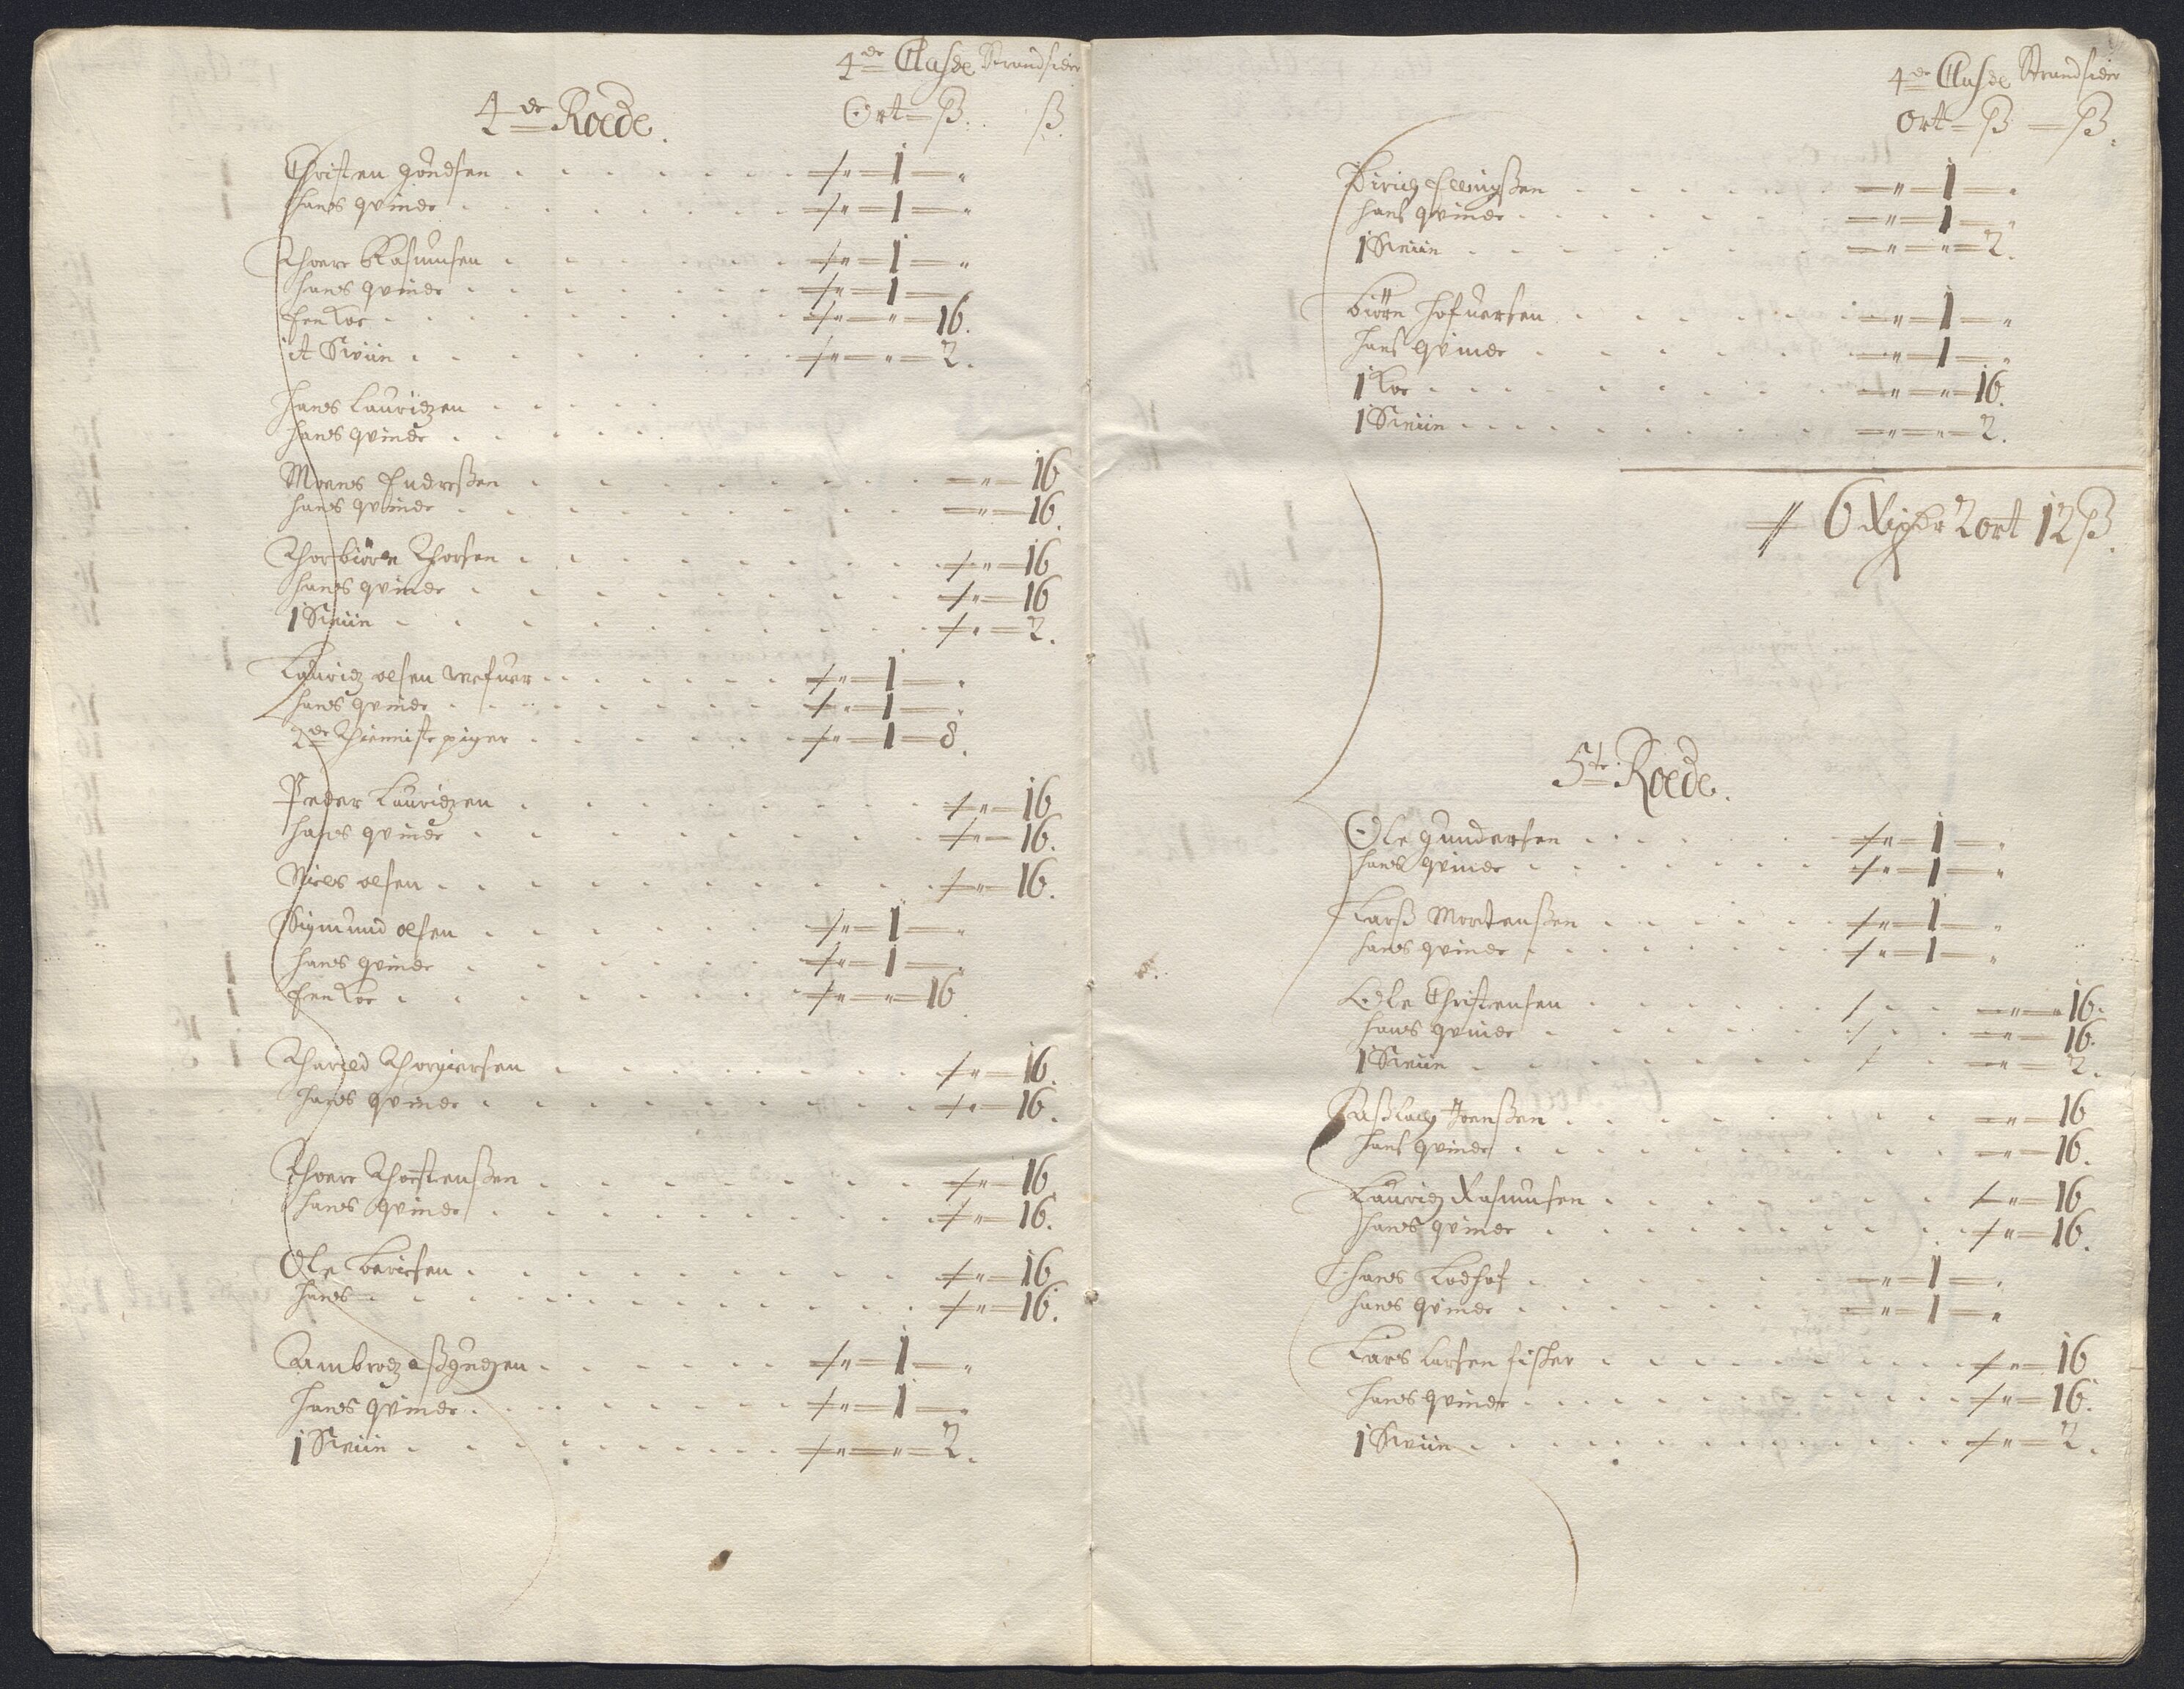 4de Classe Strandsider
4de Roede. Ort - ß. ß.
Christen Jondsen - 1 -
hans qvinde - 1 -
Thoere Rasmusen - 1 -
hans qvinde - 1 -
Een koe - " - 16.
it Sviin - " - 2.
Hans Lauridzen
hans qvinde
Moens Endreßen - 16
hans qvinde - 16.
Thorbiörn Thorsen - 16
hans qvinde - 16
1 Sviin - 2.
Lauridz olsen Wefuer - 1 -
hans qvinde - 1 -
2de Thienniste piger - 1 - 8.
Peder Lauridzen - 16
hans qvinde - 16.
Niels olsen - 16.
Sigmund olsen - 1 -
hans qvinde - 1 -
Een koe - " - 16
Thorgiersen - 16.
hans qvinde - 16.
Thoere Thorstenßen - 16
hans qvinde - 16.
Ole - 16
hans - 16.
Ambrodz aßgudzen - 1 -
hans qvinde - 1 -
1 Sviin - " - 2.
4de Classe Strandsider
Ort - ß - ß.
Dirich Ellingßen - 1 -
hans qvinde - 1 -
1 Sviin - " - 2.
Biörn - 1 -
hans qvinde - 1 -
1 koe - " - 16.
1 Sviin - " - 2.
6 Rixdr 2 ort 12 ß.
5te Roede.
Ole Gundersen - 1 -
hans qvinde - 1 -
Larß Mortenßen - 1 -
hans qvinde - 1 -
Ole Christensen - 16.
hans qvinde - 16.
1 Sviin - 2.
Aßlach Joenßen - 16
hans qvinde - 16.
Lauridz Rasmusen - 16
hans qvinde - 16.
Hans - 1 -
hans qvinde - 1 -
Lars Larsen fisker - 16
hans qvinde - 16.
1 Sviin - 2.